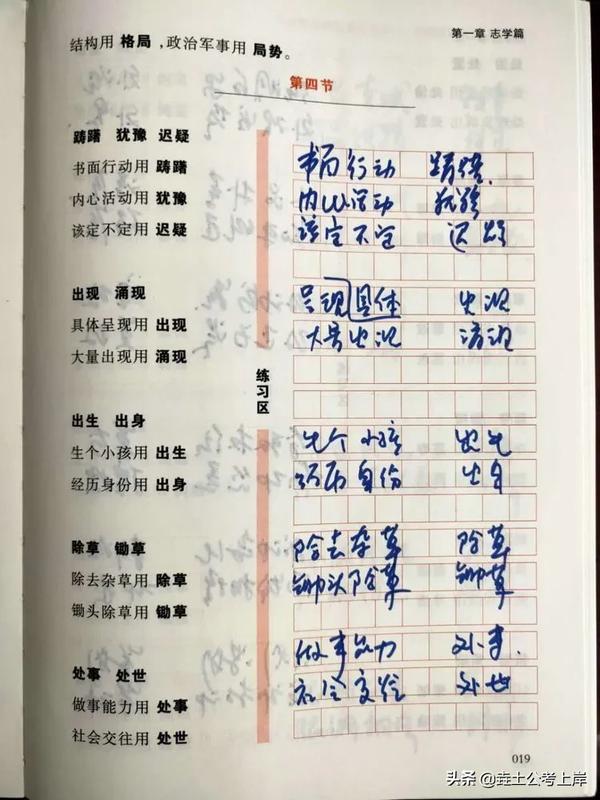 第一章 志学篇
结构用 格局 ，政治军事用 局势。
第四节
踌躇 犹豫 迟疑
书面行动用 踌躇
内心活动用 犹豫
该定不定用 迟疑
出现 涌现
具体呈现用 出现
大量出现用 涌现
出生 出身
生个小孩用 出生
经历身份用 出身
除草 锄草
除去杂草用 除草
锄头除草用 锄草
处事 处世
做事能力用 处事
社会交往用 处世
练习区
书面行动 踌躇
内心活动 犹豫
该定不定 迟疑
呈现具体 出现
大量出现 涌现
生个小孩 出生
经历身份 出身
除去杂草 除草
锄头除草 锄草
做事能力 处事
社会交往 处世
019
头条 @垚土公考上岸